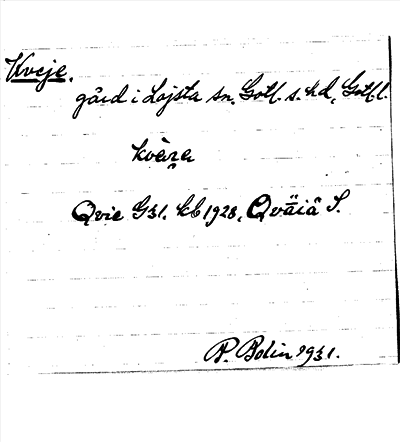 Kveje.
gård i Lojsta sn. Gotl. s. hd, Gotl. l.
Qvie G31. kb 1928, Qväiä S.
P. Bolin 1931.